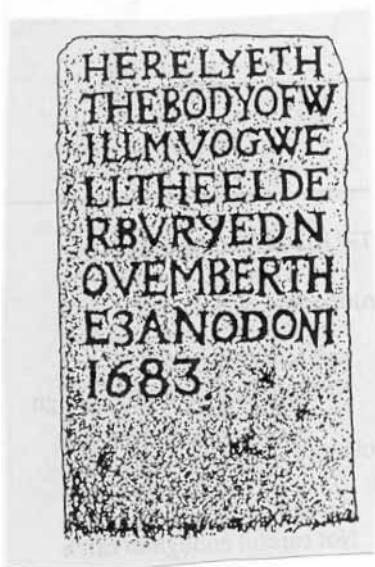 HERELYETH
THEBODYOFW
ILLMVOGWE
LLTHEELDE
RBVRYEDN
OVEMBERTH
E3ANODONI
1683